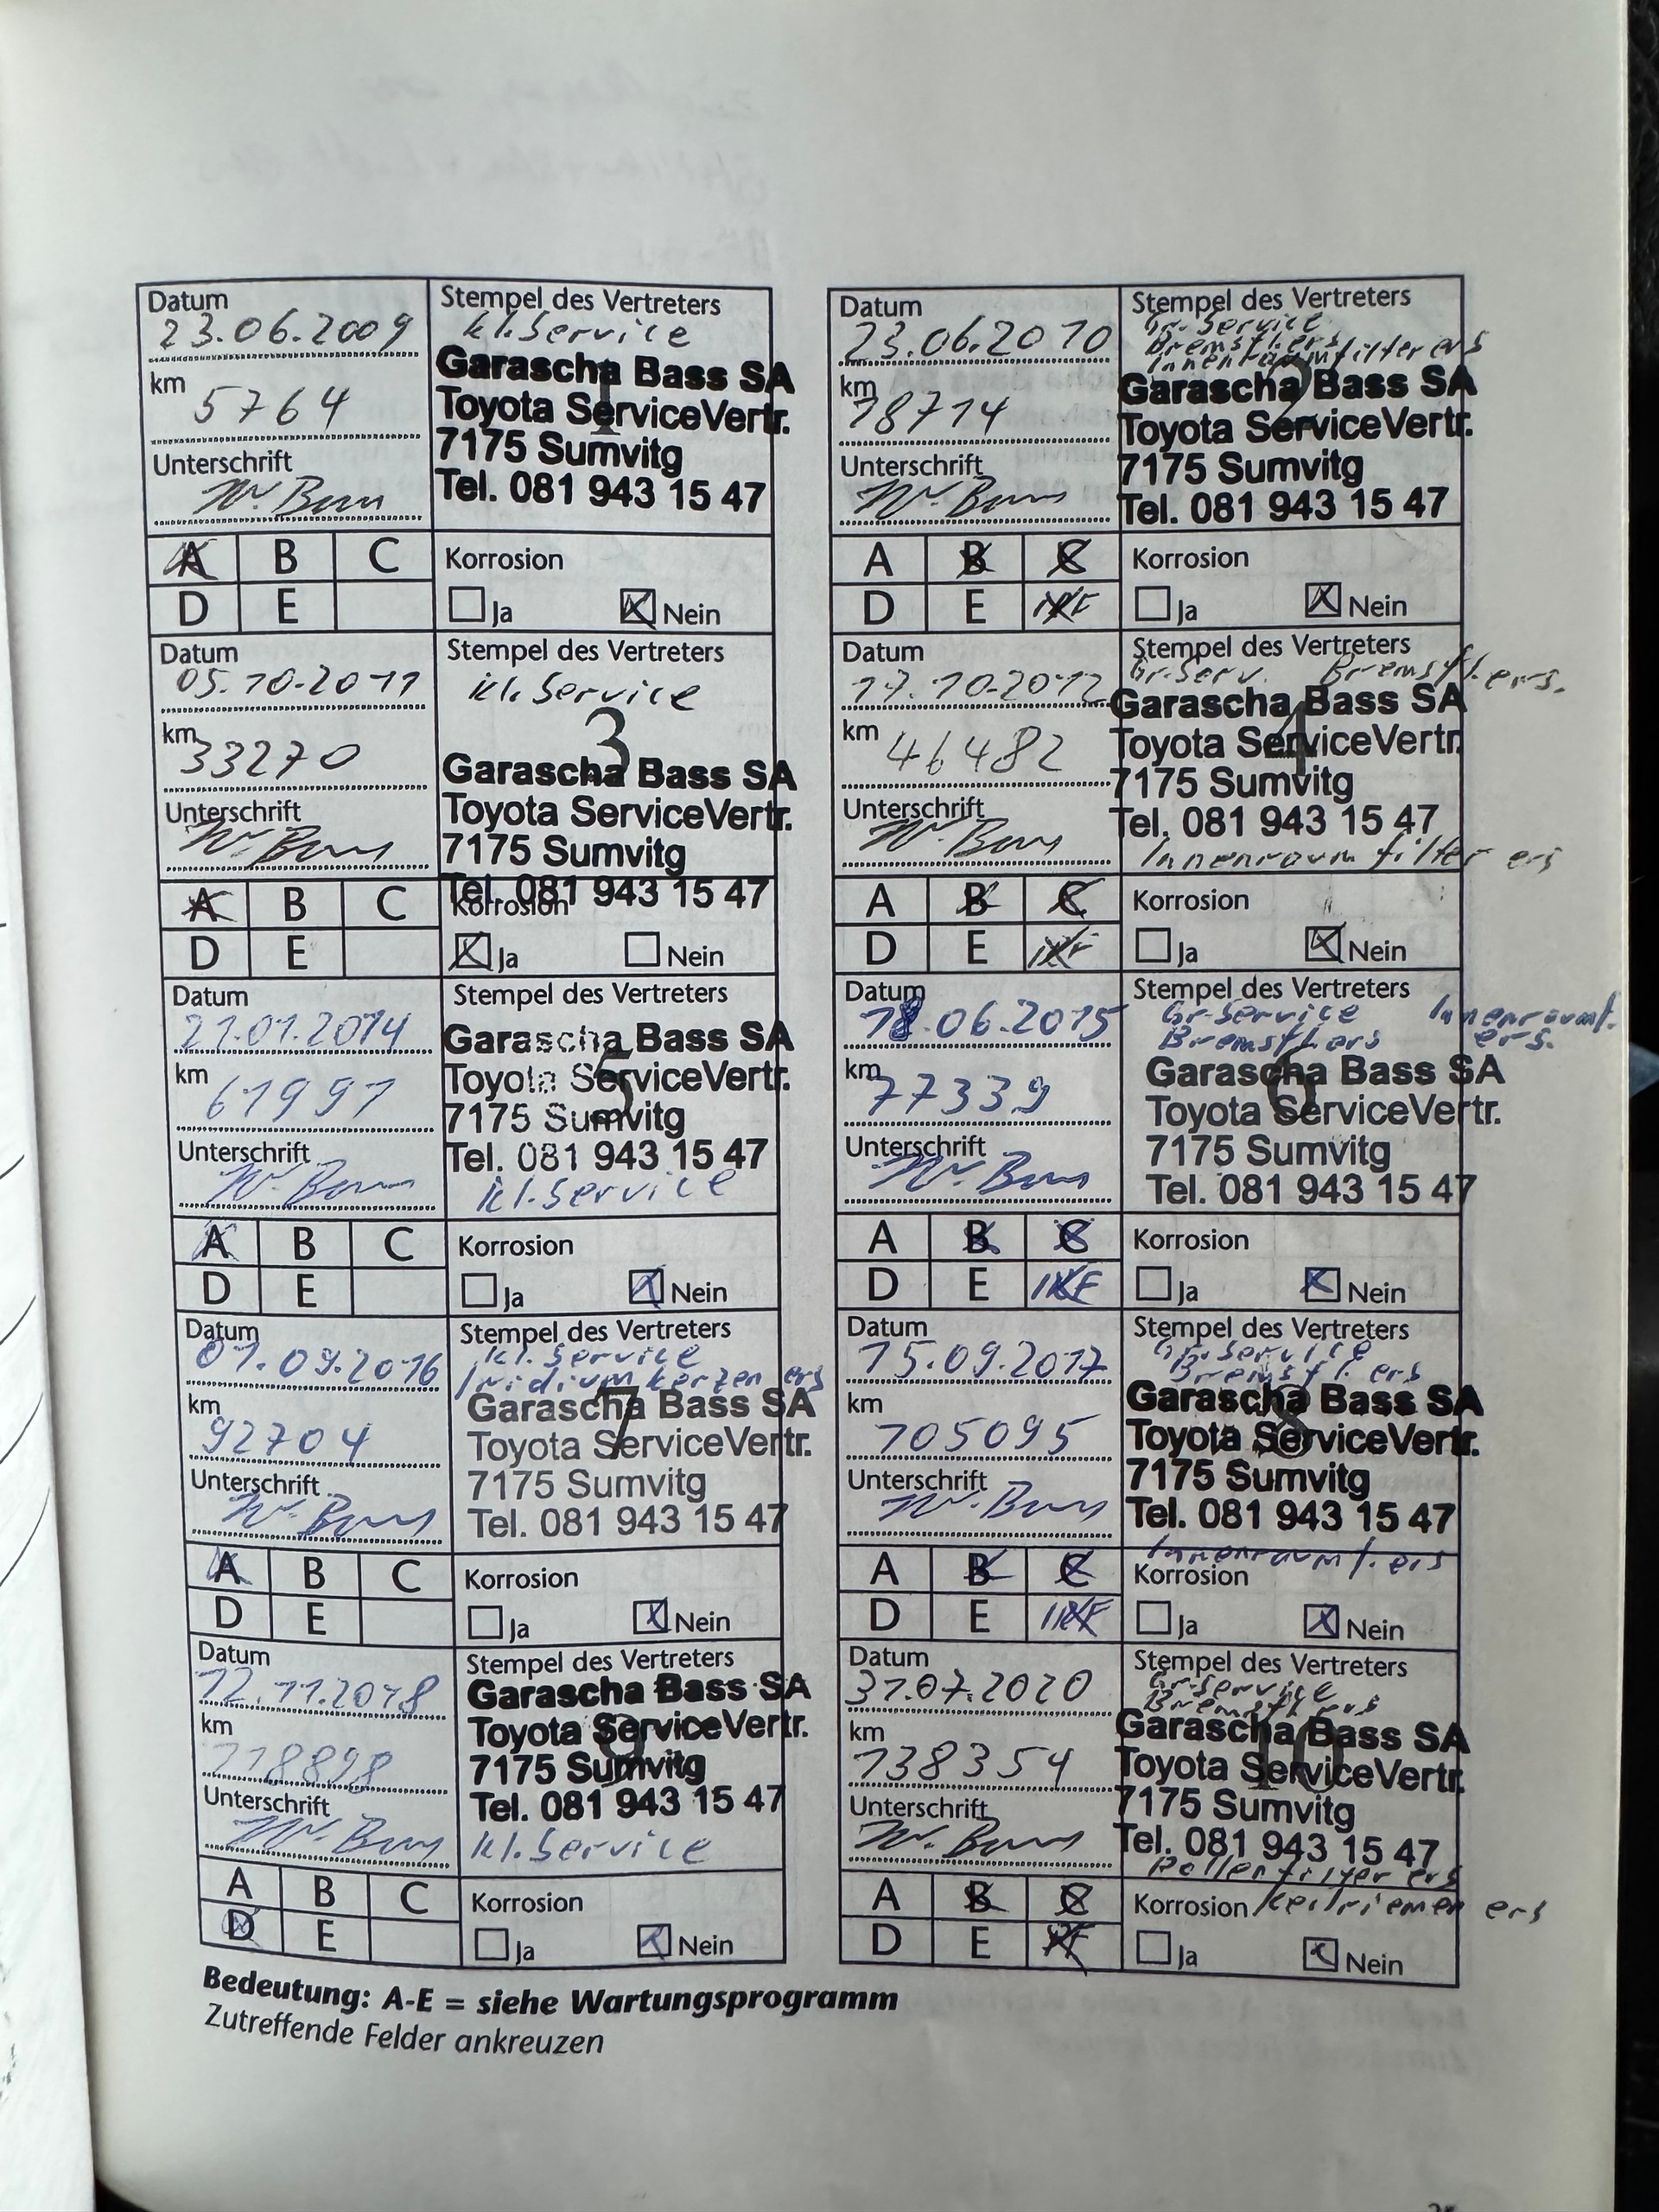 Datum
23.06.2009
km
5764
Unterschrift
W. Bass
Stempel des Vertreters
kl. Service
1
Garascha Bass SA
Toyota ServiceVertr.
7175 Sumvitg
Tel. 081 943 15 47
A B C
D E
Korrosion
Ja Nein
Datum
23.06.2010
km
18714
Unterschrift
W. Bass
Stempel des Vertreters
Gr. Service
Bremsfl ers
Innenraumfilter ers
2
Garascha Bass SA
Toyota ServiceVertr.
7175 Sumvitg
Tel. 081 943 15 47
A B C
D E
Korrosion
Ja Nein
Datum
05.10.2011
km
33270
Unterschrift
W. Bass
Stempel des Vertreters
kl. Service
3
Garascha Bass SA
Toyota ServiceVertr.
7175 Sumvitg
Tel. 081 943 15 47
A B C
D E
Korrosion
Ja Nein
Datum
17.10.2012
km
46482
Unterschrift
W. Bass
Stempel des Vertreters
Gr. Serv. Bremsfl. ers.
4
Garascha Bass SA
Toyota ServiceVertr.
7175 Sumvitg
Tel. 081 943 15 47
Innenraumfilter ers
A B C
D E
Korrosion
Ja Nein
Datum
21.01.2014
km
61991
Unterschrift
W. Bass
Stempel des Vertreters
5
Garascha Bass SA
Toyota ServiceVertr.
7175 Sumvitg
Tel. 081 943 15 47
kl. Service
A B C
D E
Korrosion
Ja Nein
Datum
18.06.2015
km
77339
Unterschrift
W. Bass
Stempel des Vertreters
Gr. Service Innenraumf.
Bremsfl. ers ers.
6
Garascha Bass SA
Toyota ServiceVertr.
7175 Sumvitg
Tel. 081 943 15 47
A B C
D E
Korrosion
Ja Nein
Datum
01.09.2016
km
92704
Unterschrift
W. Bass
Stempel des Vertreters
kl. Service
Iridium kerzen ers
7
Garascha Bass SA
Toyota ServiceVertr.
7175 Sumvitg
Tel. 081 943 15 47
A B C
D E
Korrosion
Ja Nein
Datum
15.09.2017
km
105095
Unterschrift
W. Bass
Stempel des Vertreters
Gr. Service
Bremsfl. ers
8
Garascha Bass SA
Toyota ServiceVertr.
7175 Sumvitg
Tel. 081 943 15 47
Innenraumf. ers
A B C
D E
Korrosion
Ja Nein
Datum
12.11.2018
km
118898
Unterschrift
W. Bass
Stempel des Vertreters
9
Garascha Bass SA
Toyota ServiceVertr.
7175 Sumvitg
Tel. 081 943 15 47
kl. Service
A B C
D E
Korrosion
Ja Nein
Datum
31.07.2020
km
138354
Unterschrift
W. Bass
Stempel des Vertreters
Gr. Service
Bremsfl. ers
10
Garascha Bass SA
Toyota ServiceVertr.
7175 Sumvitg
Tel. 081 943 15 47
Pollenfilter ers
A B C
D E
Korrosion Keilriemen ers
Ja Nein
Bedeutung: A-E = siehe Wartungsprogramm
Zutreffende Felder ankreuzen